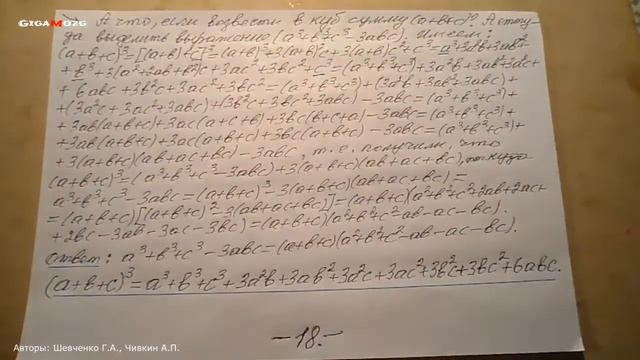 GIGAMOZG
А что, если возвести в куб сумму (a+b+c)? А отту-
да выделить выражение (a³+b³+c³-3abc). Имеем:
(a+b+c)³=[(a+b)+c]³=(a+b)³+3(a+b)²c+3(a+b)c²+c³=a³+3a²b+3ab²+
+b³+3(a²+2ab+b²)c+3ac²+3bc²+c³=(a³+b³+c³)+3a²b+3ab²+3a²c+
+6abc+3b²c+3ac²+3bc²=(a³+b³+c³)+(3a²b+3ab²+3abc)+
+(3a²c+3ac²+3abc)+(3b²c+3bc²+3abc)-3abc=(a³+b³+c³)+
+3ab(a+b+c)+3ac(a+c+b)+3bc(b+c+a)-3abc=(a³+b³+c³)+
+3ab(a+b+c)+3ac(a+b+c)+3bc(a+b+c)-3abc=(a³+b³+c³)+
+3(a+b+c)(ab+ac+bc)-3abc, т.е. получили, что
(a+b+c)³=(a³+b³+c³-3abc)+3(a+b+c)(ab+ac+bc), откуда
a³+b³+c³-3abc=(a+b+c)³-3(a+b+c)(ab+ac+bc)=
=(a+b+c)[(a+b+c)²-3(ab+ac+bc)]=(a+b+c)(a²+b²+c²+2ab+2ac+
+2bc-3ab-3ac-3bc)=(a+b+c)(a²+b²+c²-ab-ac-bc).
Ответ: a³+b³+c³-3abc=(a+b+c)(a²+b²+c²-ab-ac-bc).
(a+b+c)³=a³+b³+c³+3a²b+3ab²+3a²c+3ac²+3b²c+3bc²+6abc.
-18.-
Авторы: Шевченко Г.А., Чивкин А.П.